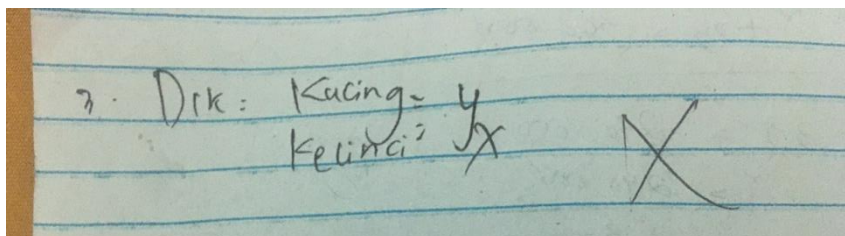 3. Dik: Kucing = y
Kelinci = x
X